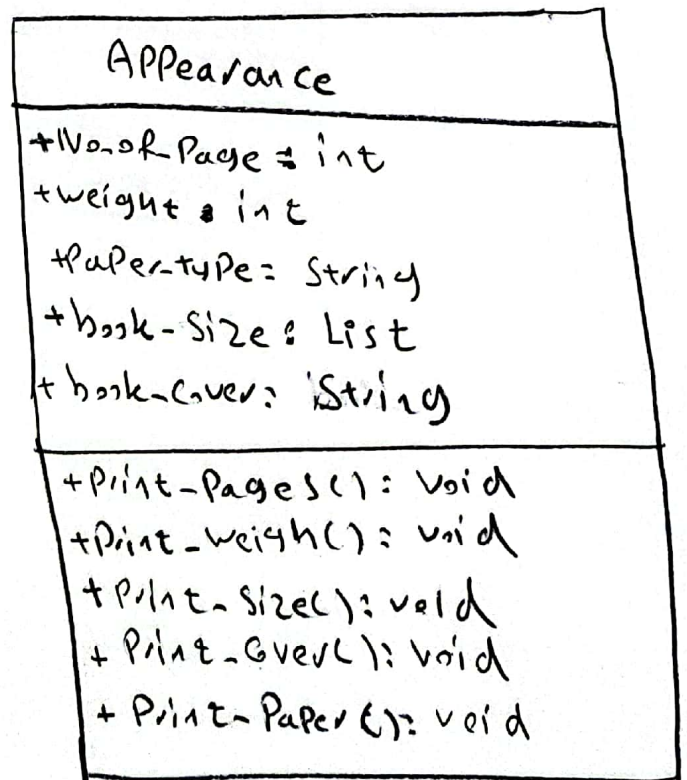 Appearance
+No_of_Page : int
+weight : int
+Paper_type : String
+book_Size : List
+book_Cover : String
+Print_Pages() : void
+Print_Weigh() : void
+Print_Size() : void
+Print_Cover() : void
+Print_Paper() : void